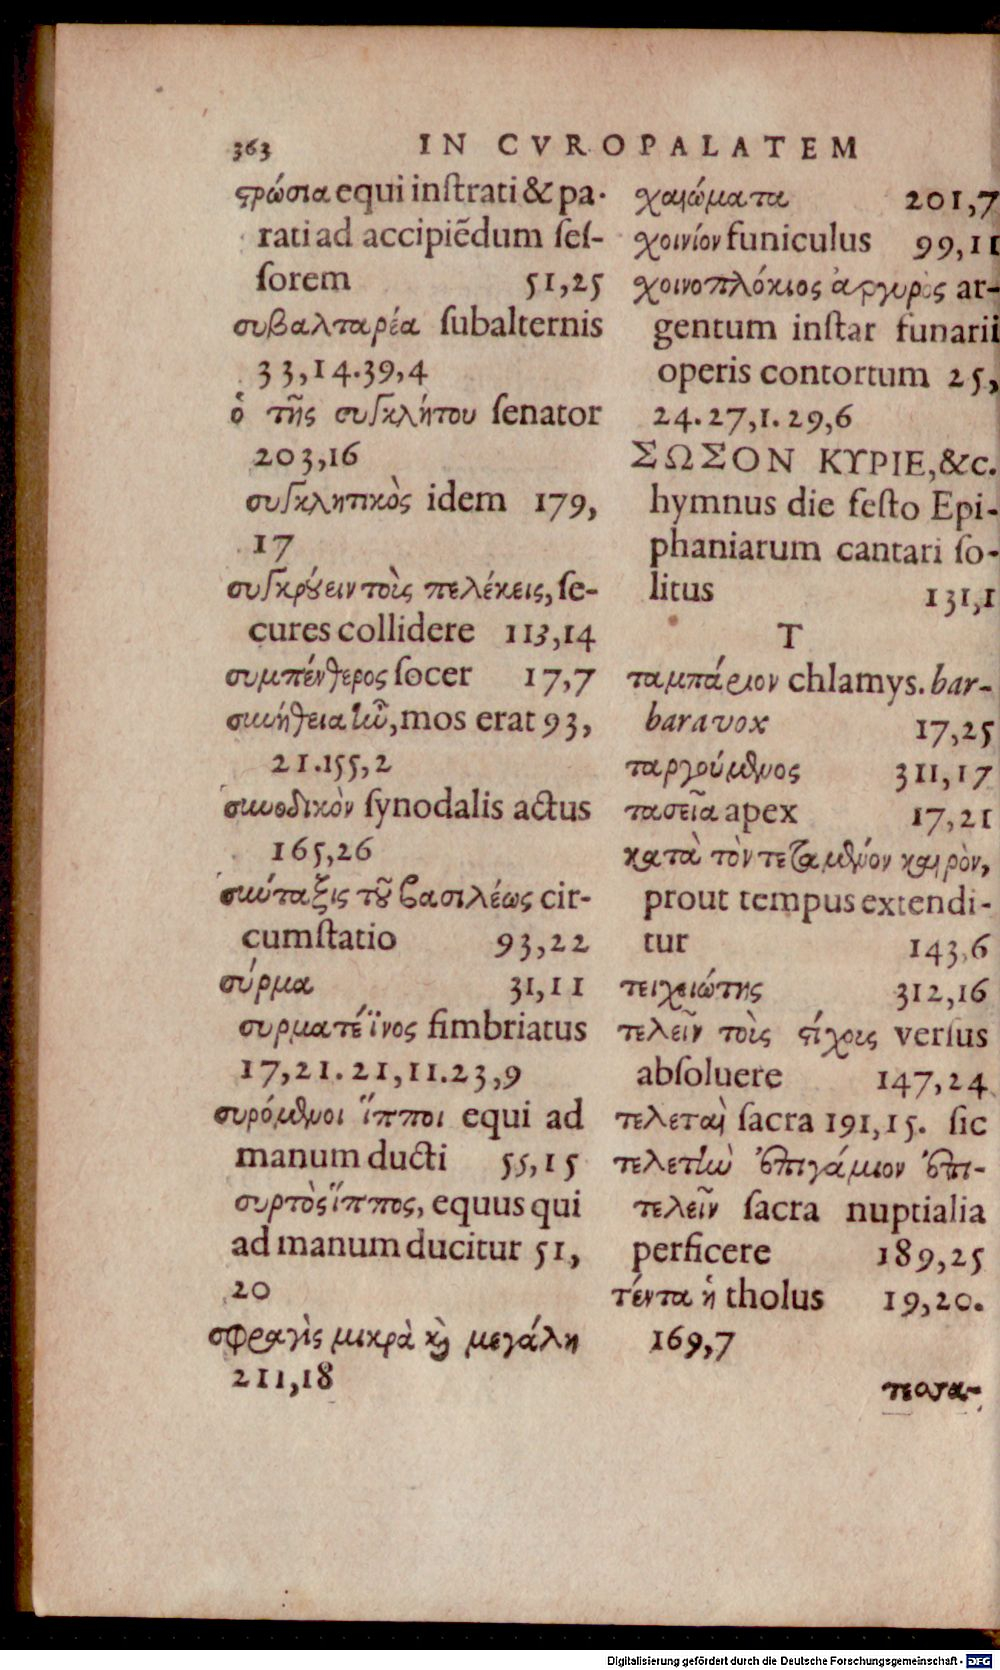 363 IN CVROPALATEM
ϛρώσια equi inſtrati & pa-
rati ad accipiẽdum ſeſ-
ſorem 51,25
συβαλταρέα ſubalternis
33,14.39,4
ὁ τῆς συγκλήτου ſenator
203,16
συγκλητικὸς idem 179,
17
συγκρούειν τοῖς πελέκεις, ſe-
cures collidere 113,14
συμπένθερος ſocer 17,7
συνήθεια ἦν, mos erat 93,
21.155,2
συνοδικὸν ſynodalis actus
165,26
σύνταξις τοῦ βασιλέως cir-
cumſtatio 93,22
σύρμα 31,11
συρματέϊνος fimbriatus
17,21.21,11.23,9
συρόμενοι ἵπποι equi ad
manum ducti 55,15
συρτὸς ἵππος, equus qui
ad manum ducitur 51,
20
σφραγὶς μικρὰ καὶ μεγάλη
211,18
201,7
χοινίον funiculus 99,11
χοινοπλόκιος ἀργυρὸς ar-
gentum inſtar funarii
operis contortum 25,
24.27,1.29,6
ΣΩΣΟΝ ΚΥΡΙΕ, &c.
hymnus die feſto Epi-
phaniarum cantari ſo-
litus 131,1
T
ταμπάριον chlamys. barbara
bara vox 17,25
ταργούμενος 311,17
τασεῖα apex 17,21
κατὰ τὸν τεταμένον καιρὸν,
prout tempus extendi-
tur 143,6
τειχειώτης 312,16
τελεῖν τοῖς ϛίχοις verſus
abſoluere 147,24
τελεταὶ ſacra 191,15. ſic
τελετὴν ἐπιγάμιον ἐπι-
τελεῖν ſacra nuptialia
perficere 189,25
τέντα ἡ tholus 19,20.
169,7
Digitalisierung gefördert durch die Deutsche Forschungsgemeinschaft - DFG